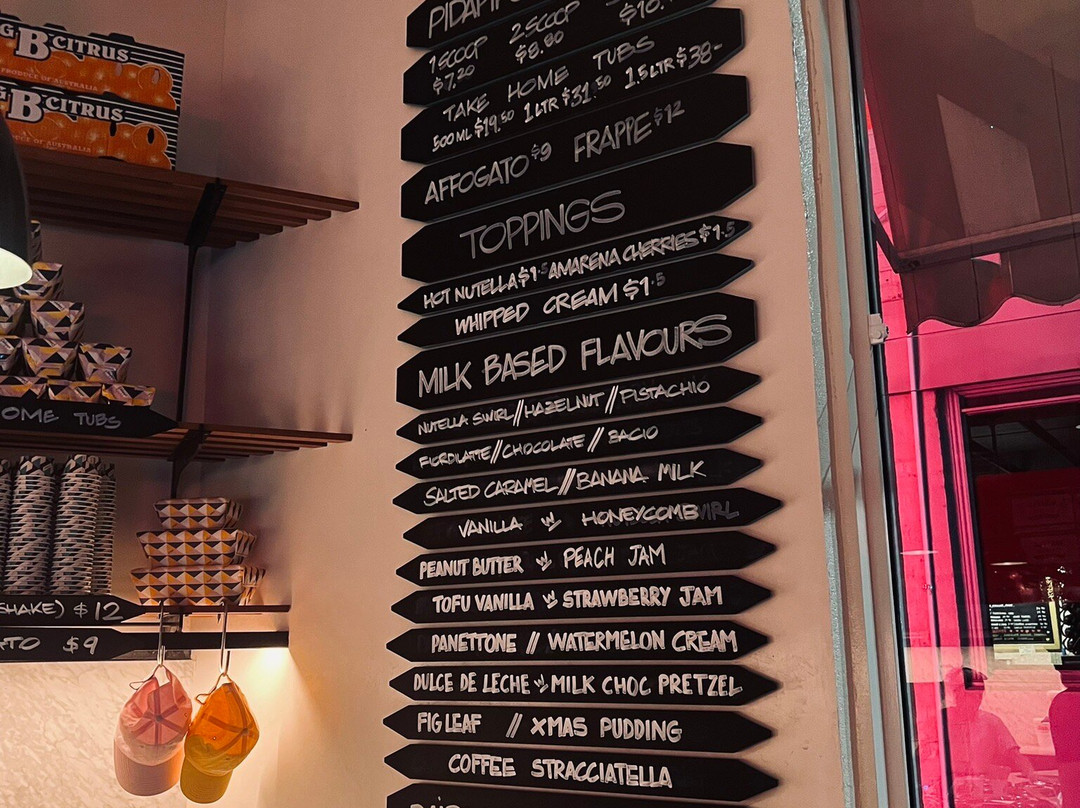 G B CITRUS
PRODUCE OF AUSTRALIA
G B CITRUS
OF AUSTRALIA
OME TUBS
SHAKE) $12
TO $9
1 SCOOP 2 SCOOP
$7.20 $8.80 $10.
TAKE HOME TUBS
500ML $19.50 1LTR $31.50 1.5LTR $38-
AFFOGATO $9 FRAPPE $12
TOPPINGS
HOT NUTELLA $1.5 AMARENA CHERRIES $1.5
WHIPPED CREAM $1.5
MILK BASED FLAVOURS
NUTELLA SWIRL // HAZELNUT // PISTACHIO
FIORDILATTE // CHOCOLATE // BACIO
SALTED CARAMEL // BANANA MILK
VANILLA W/ HONEYCOMB
PEANUT BUTTER W/ PEACH JAM
TOFU VANILLA W/ STRAWBERRY JAM
PANETTONE // WATERMELON CREAM
DULCE DE LECHE W/ MILK CHOC PRETZEL
FIG LEAF // XMAS PUDDING
COFFEE STRACCIATELLA